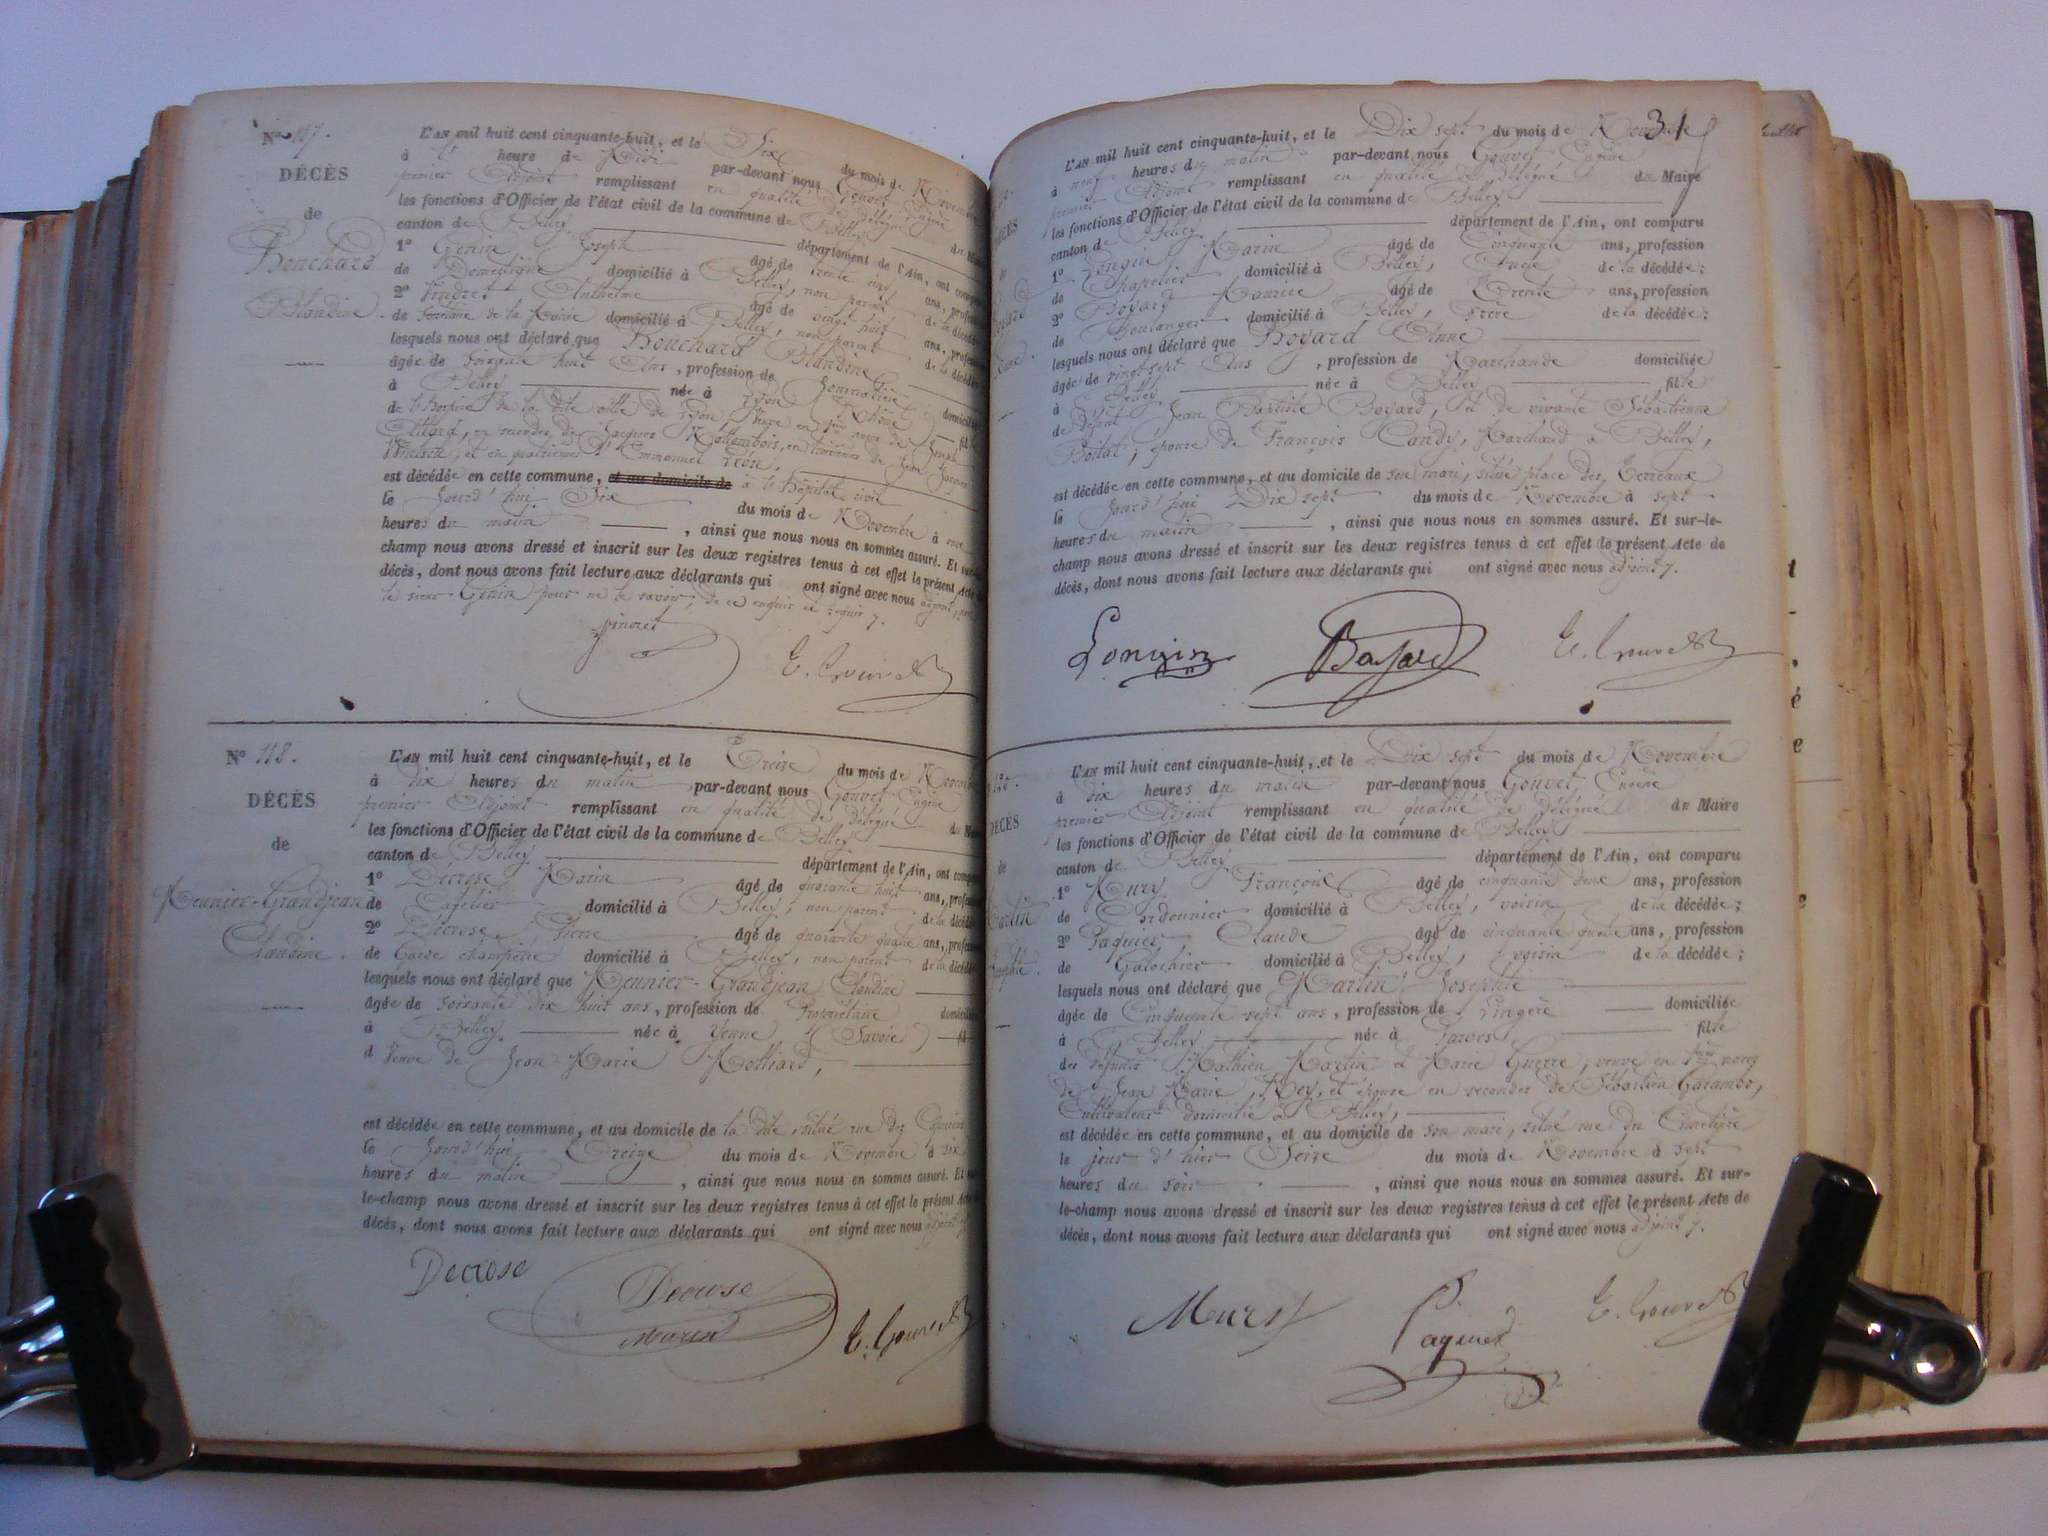 No 117.
DÉCÈS
de
Bouchard
Blandine.
L'AN mil huit cent cinquante-huit, et le Six du mois de Novembre
à heure de Midi par-devant nous Gouvet Eugène
premier Adjoint remplissant en qualité de délégué du Maire
les fonctions d'Officier de l'état civil de la commune de Belley
canton de Belley département de l'Ain, ont comparu
1o Genin Joseph âgé de trente cinq ans, profession
de Domestique domicilié à Belley, non parent de la décédée
2o Anthelme âgé de vingt huit ans, profession
de Secrétaire de la Mairie domicilié à Belley, non parent de la décédée
lesquels nous ont déclaré que Bouchard Blandine
âgée de soixante huit Ans, profession de Journalière domiciliée
à Belley née à Lyon (Rhône) fille
de l'hospice de la dite ville de Lyon, Veuve en 1res noces de Joseph
en secondes de Jacques en troisièmes de Jean Jacques
et en quatrièmes d'Emmanuel Léon,
est décédée en cette commune, et au domicile de à l'hôpital civil
le Jourd'hui Six du mois de Novembre à onze
heures du matin, ainsi que nous nous en sommes assuré. Et sur-le-
champ nous avons dressé et inscrit sur les deux registres tenus à cet effet le présent Acte de
décès, dont nous avons fait lecture aux déclarants qui ont signé avec nous adjoint, non
le sieur Genin pour ne le savoir, de ce enquis et requis
E. Gouvet
No 118.
DÉCÈS
de
Meunier-Grandjean
Claudine.
L'AN mil huit cent cinquante-huit, et le Treize du mois de Novembre
à dix heures du matin par-devant nous Gouvet Eugène
premier Adjoint remplissant en qualité de délégué du Maire
les fonctions d'Officier de l'état civil de la commune de Belley
canton de Belley département de l'Ain, ont comparu
1o Décrose Marin âgé de quarante huit ans, profession
de Cafetier domicilié à Belley, non parent de la décédée
2o Décrose Pierre âgé de quarante quatre ans, profession
de Garde champêtre domicilié à Belley, non parent de la décédée
lesquels nous ont déclaré que Meunier-Grandjean Claudine
âgée de soixante dix huit ans, profession de Propriétaire domiciliée
à Belley née à Yenne (Savoie) fille
d Veuve de Jean Marie Molliard,
est décédée en cette commune, et au domicile de la dite, situé rue des Capucins
le Jourd'hui Treize du mois de Novembre à six
heures du matin, ainsi que nous nous en sommes assuré. Et sur-
le-champ nous avons dressé et inscrit sur les deux registres tenus à cet effet le présent Acte de
décès, dont nous avons fait lecture aux déclarants qui ont signé avec nous adjoint
Decrose
Decrose
Marin
E. Gouvet
31
L'AN mil huit cent cinquante-huit, et le Dix sept du mois de Novembre
à neuf heures du matin par-devant nous Gouvet Eugène
premier Adjoint remplissant en qualité de délégué du Maire
les fonctions d'Officier de l'état civil de la commune de Belley
canton de Belley département de l'Ain, ont comparu
1o Longin Marin âgé de Cinquante ans, profession
de Chapelier domicilié à Belley, Oncle de la décédée;
2o Boyard Maurice âgé de Trente ans, profession
de Boulanger domicilié à Belley, Frère de la décédée;
lesquels nous ont déclaré que Boyard Anne
âgée de vingt sept Ans, profession de Marchande domiciliée
à Belley née à Belley fille
de défunt Jean Baptiste Boyard, et de vivante Sébastienne
épouse de François Candy, Marchand à Belley,
est décédée en cette commune, et au domicile de son mari, situé place des Terreaux
le Jourd'hui Dix sept du mois de Novembre à sept
heures du matin, ainsi que nous nous en sommes assuré. Et sur-le-
champ nous avons dressé et inscrit sur les deux registres tenus à cet effet le présent Acte de
décès, dont nous avons fait lecture aux déclarants qui ont signé avec nous adjoint.
Longin
Boyard
E. Gouvet
DÉCÈS
de
Martin
Josephte.
L'AN mil huit cent cinquante-huit, et le Dix sept du mois de Novembre
à dix heures du matin par-devant nous Gouvet Eugène
premier Adjoint remplissant en qualité de délégué du Maire
les fonctions d'Officier de l'état civil de la commune de Belley
canton de Belley département de l'Ain, ont comparu
1o Mury François âgé de cinquante deux ans, profession
de Cordonnier domicilié à Belley, voisin de la décédée;
2o Paquier Claude âgé de cinquante quatre ans, profession
de Galochier domicilié à Belley, voisin de la décédée;
lesquels nous ont déclaré que Martin Josephte
âgée de Cinquante sept ans, profession de Lingère domiciliée
à Belley née à Parves fille
des défunts Mathieu Martin et Marie Guerre, veuve en 1ères noces
de Jean Marie Rey, et épouse en secondes de Sébastien Garambo,
Cultivateur domicilié à Belley,
est décédée en cette commune, et au domicile de son mari, situé rue du Cimetière
le jour d'hier Seize du mois de Novembre à sept
heures du soir, ainsi que nous nous en sommes assuré. Et sur-
le-champ nous avons dressé et inscrit sur les deux registres tenus à cet effet le présent Acte de
décès, dont nous avons fait lecture aux déclarants qui ont signé avec nous adjoint.
Mury
Paquier
E. Gouvet